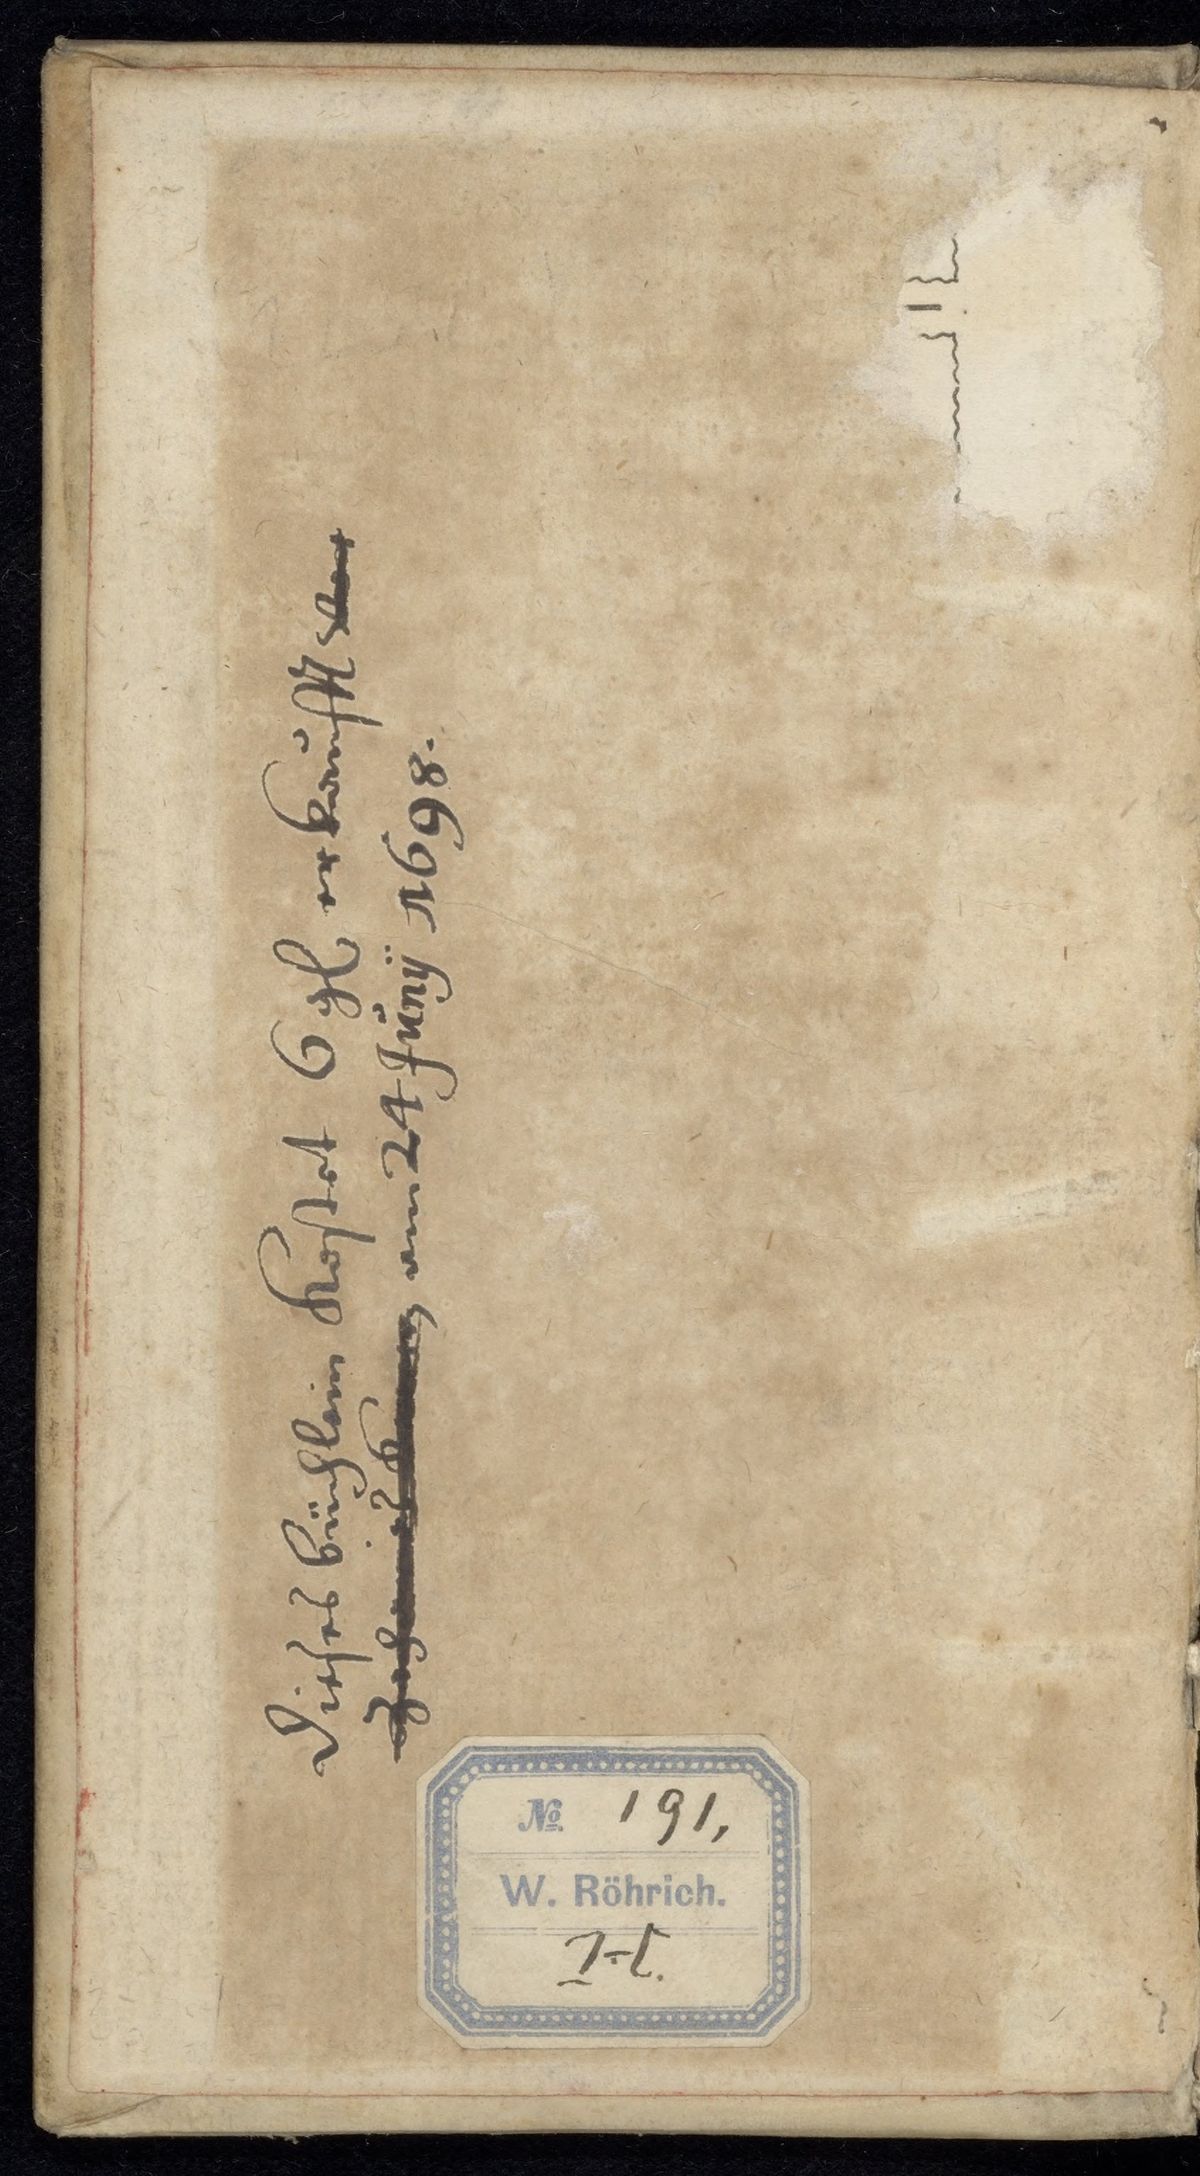 Dieses büchlein Kostet 6 gl erkaufft
am 24 Junÿ 1698.
№ 191,
W. Röhrich.